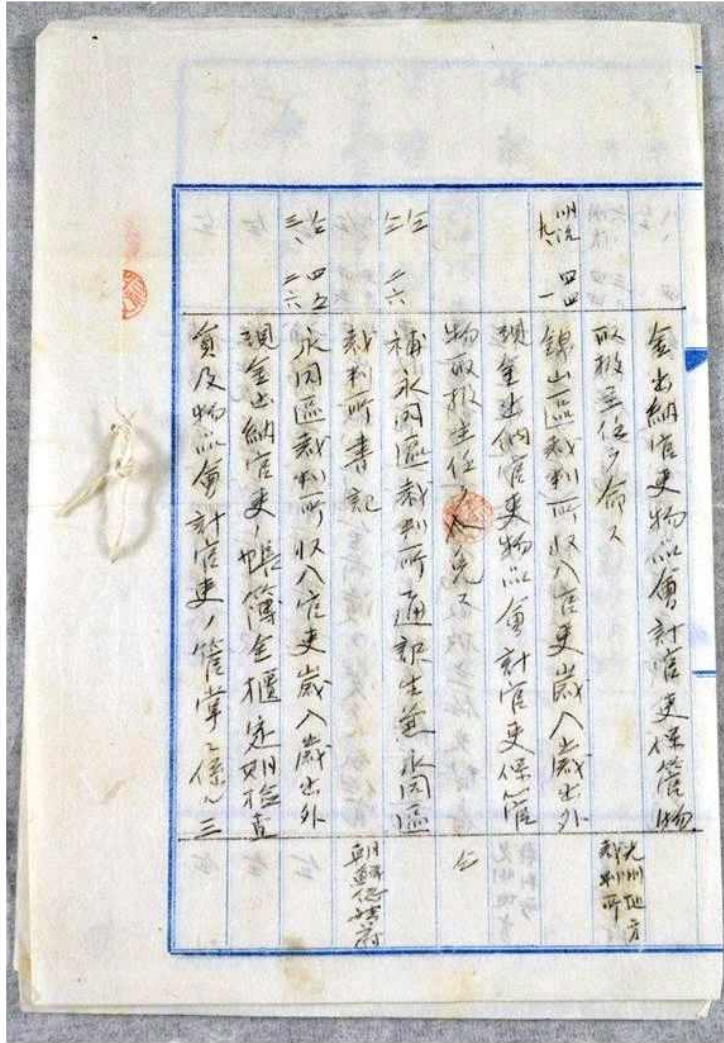 金出納官吏物品會計官吏保管物
取扱主任ヲ命ス
光州地方
裁判所
明治四四
九、一
錦山區裁判所収入官吏歳入歳出外
現金出納官吏物品會計官吏保管
物取扱主任ヲ免ス
仝
二六
補永同區裁判所通訳生兼永同區
裁判所書記
朝鮮総督府
仝四五
三、二六
永同區裁判所収入官吏歳入歳出外
現金出納官吏ノ帳簿金櫃定期検査
員及物品會計官吏ノ管掌ニ係ル三